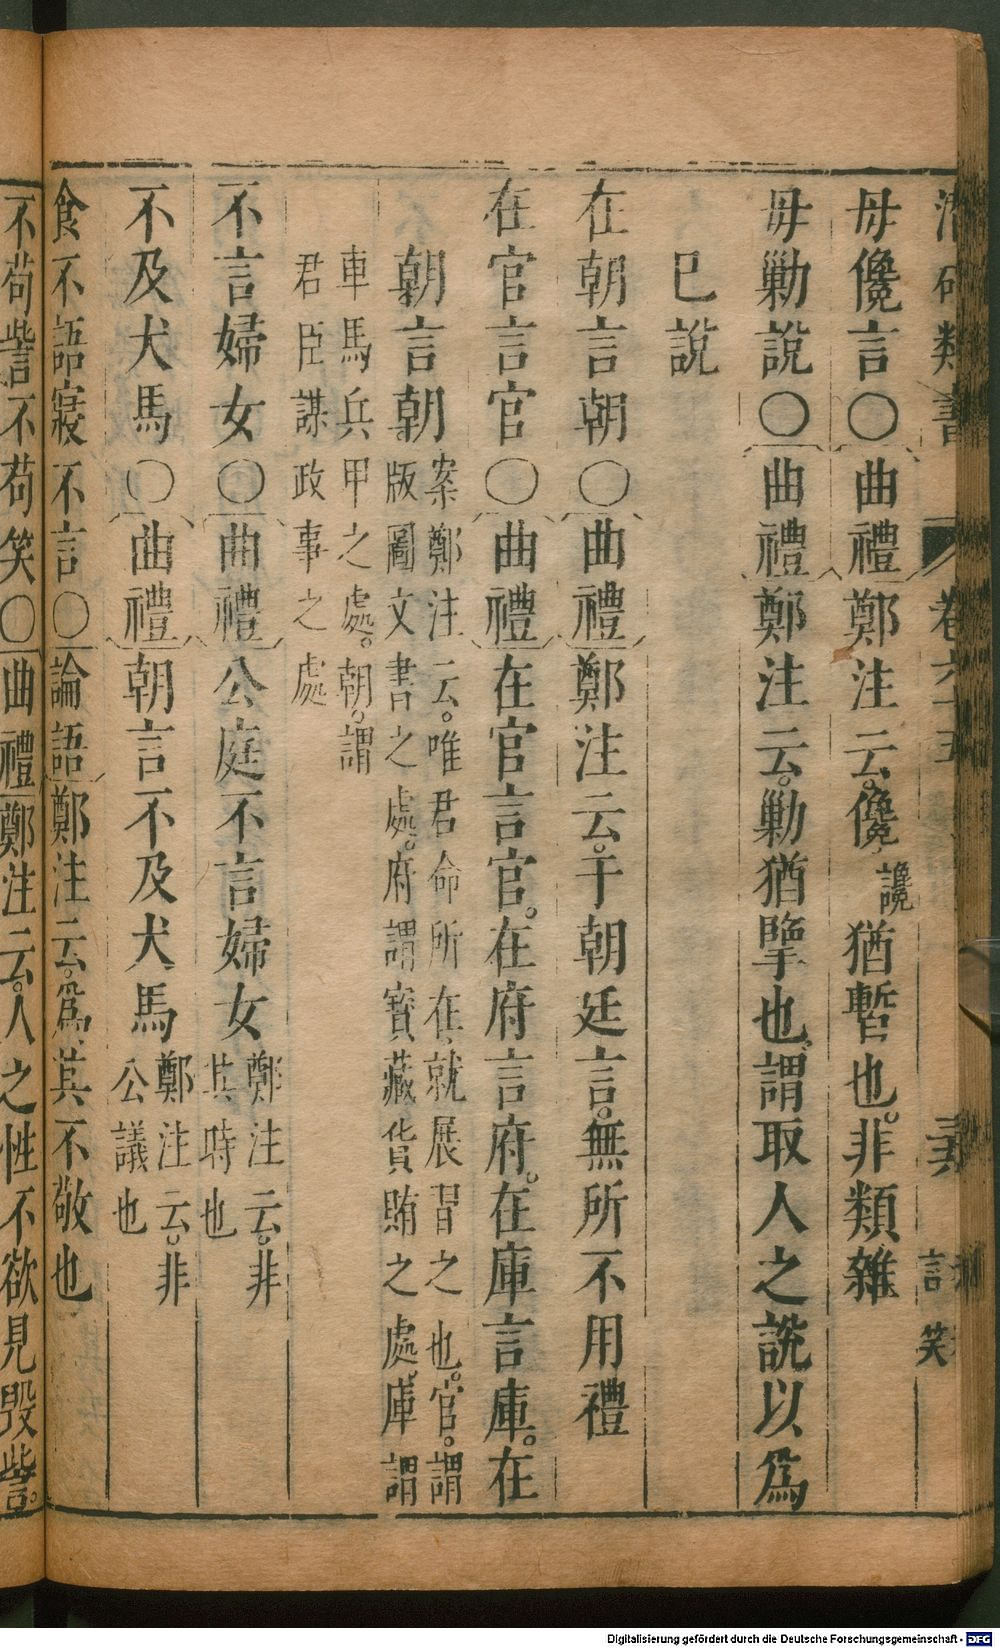 類書 卷六十五 言笑
毋儳言○曲禮鄭注云。儳讒猶暫也。非類雜
毋勦說○曲禮鄭注云。勦猶擥也。謂取人之說以爲
已說
在朝言朝○曲禮鄭注云。于朝廷言。無所不用禮
在官言官○曲禮在官言官。在府言府。在庫言庫。在
朝言朝
案鄭注云。唯君命所在就展習之也。官。謂
版圖文書之處。府謂寶藏貨賄之處。庫謂
車馬兵甲之處。朝。謂
君臣謀政事之處
不言婦女○曲禮公庭不言婦女
鄭注云。非
其時也
不及犬馬○曲禮朝言不及犬馬
鄭注云。非
公議也
食不語寢不言○論語鄭注云。爲其不敬也
不苟訾不苟笑○曲禮鄭注云。人之性不欲見毀訾。
Digitalisierung gefördert durch die Deutsche Forschungsgemeinschaft - DFG